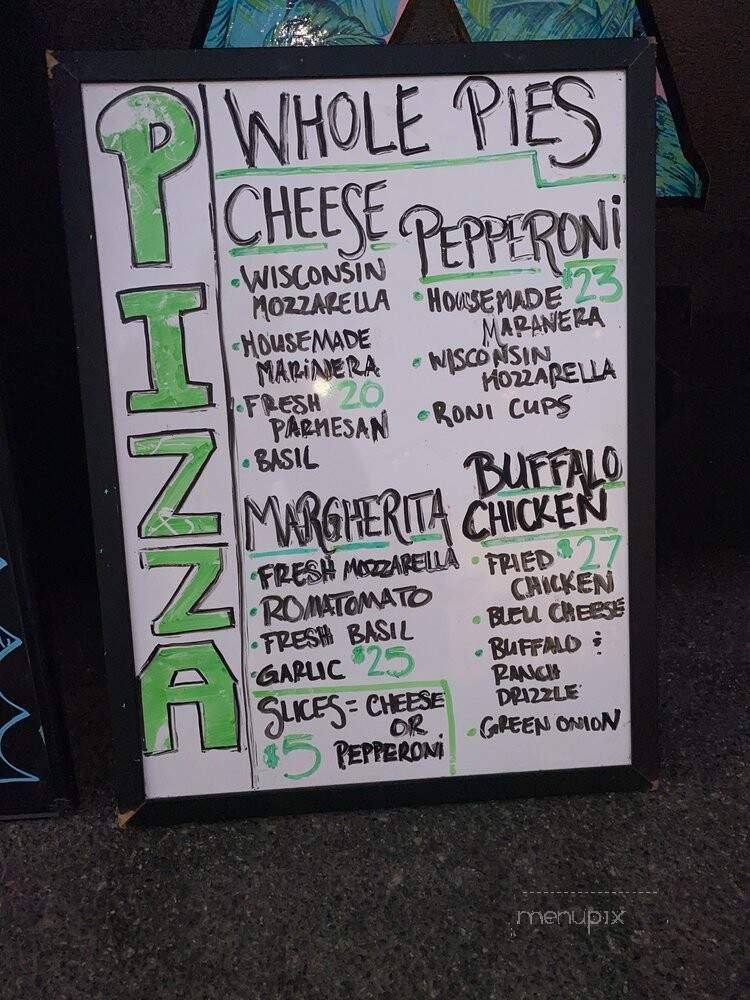 PIZZA
WHOLE PIES
CHEESE
• WISCONSIN
MOZZARELLA
• HOUSEMADE
MARINERA
• FRESH 20
PARMESAN
• BASIL
PEPPERONI
$23
• HOUSEMADE
MARANERA
• WISCONSIN
MOZZARELLA
• RONI CUPS
MARGHERITA
• FRESH MOZZARELLA
• ROMATOMATO
• FRESH BASIL
• GARLIC $25
BUFFALO
CHICKEN
• FRIED $27
CHICKEN
• BLEU CHEESE
• BUFFALO &
RANCH
DRIZZLE
• GREEN ONION
SLICES = CHEESE
OR
$5 PEPPERONI
menupix